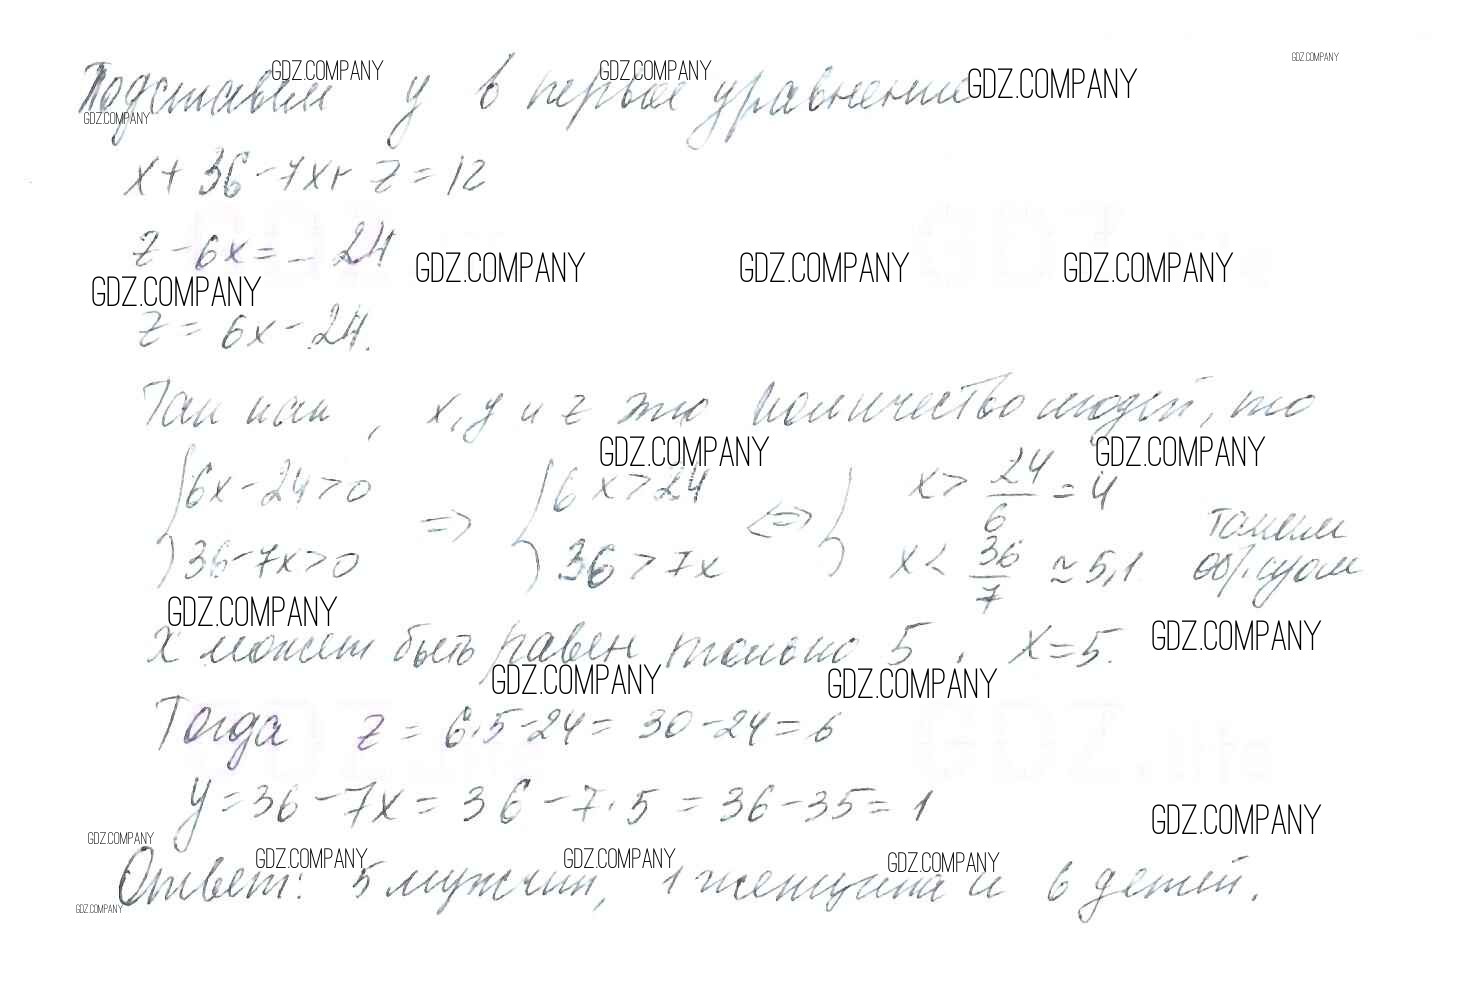 GDZ.COMPANY
Подставим GDZ.COMPANY у в первое GDZ.COMPANY уравнение GDZ.COMPANY
GDZ.COMPANY
x + 36 - 7x + z = 12
z - 6x = - 24
GDZ.COMPANY GDZ.COMPANY GDZ.COMPANY GDZ.COMPANY
z = 6x - 24.
Так как, x, y и z это количество людей, то
GDZ.COMPANY GDZ.COMPANY
{6x - 24 > 0 => {6x > 24 <=> { x > 24/6 = 4
36 - 7x > 0 36 > 7x x < 36/7 ≈ 5,1. таким образом
GDZ.COMPANY
x может быть равен только 5. x = 5. GDZ.COMPANY
GDZ.COMPANY GDZ.COMPANY
Тогда z = 6·5 - 24 = 30 - 24 = 6
y = 36 - 7x = 36 - 7·5 = 36 - 35 = 1 GDZ.COMPANY
GDZ.COMPANY GDZ.COMPANY GDZ.COMPANY GDZ.COMPANY
Ответ: 5 мужчин, 1 женщина и 6 детей.
GDZ.COMPANY